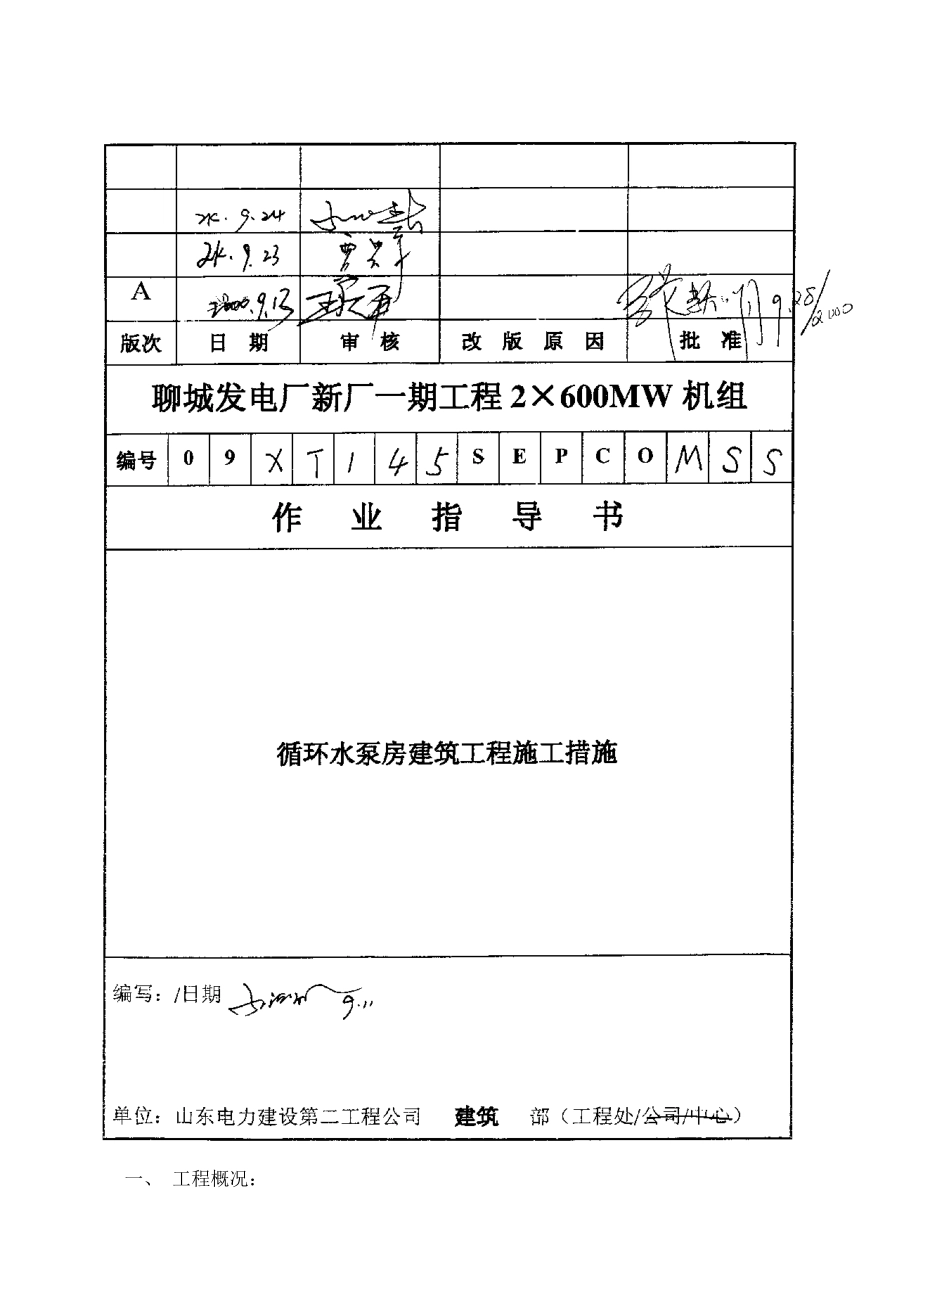 9.24
9.23
A
2000.9.13
9.28/2000
版次 日 期 审 核 改 版 原 因 批 准
聊城发电厂新厂一期工程 2×600MW 机组
编号 0 9 X T 1 4 5 S E P C O M S S
作 业 指 导 书
循环水泵房建筑工程施工措施
编写：/日期 9.11
单位：山东电力建设第二工程公司 建筑 部（工程处/公司/中心）
一、 工程概况：